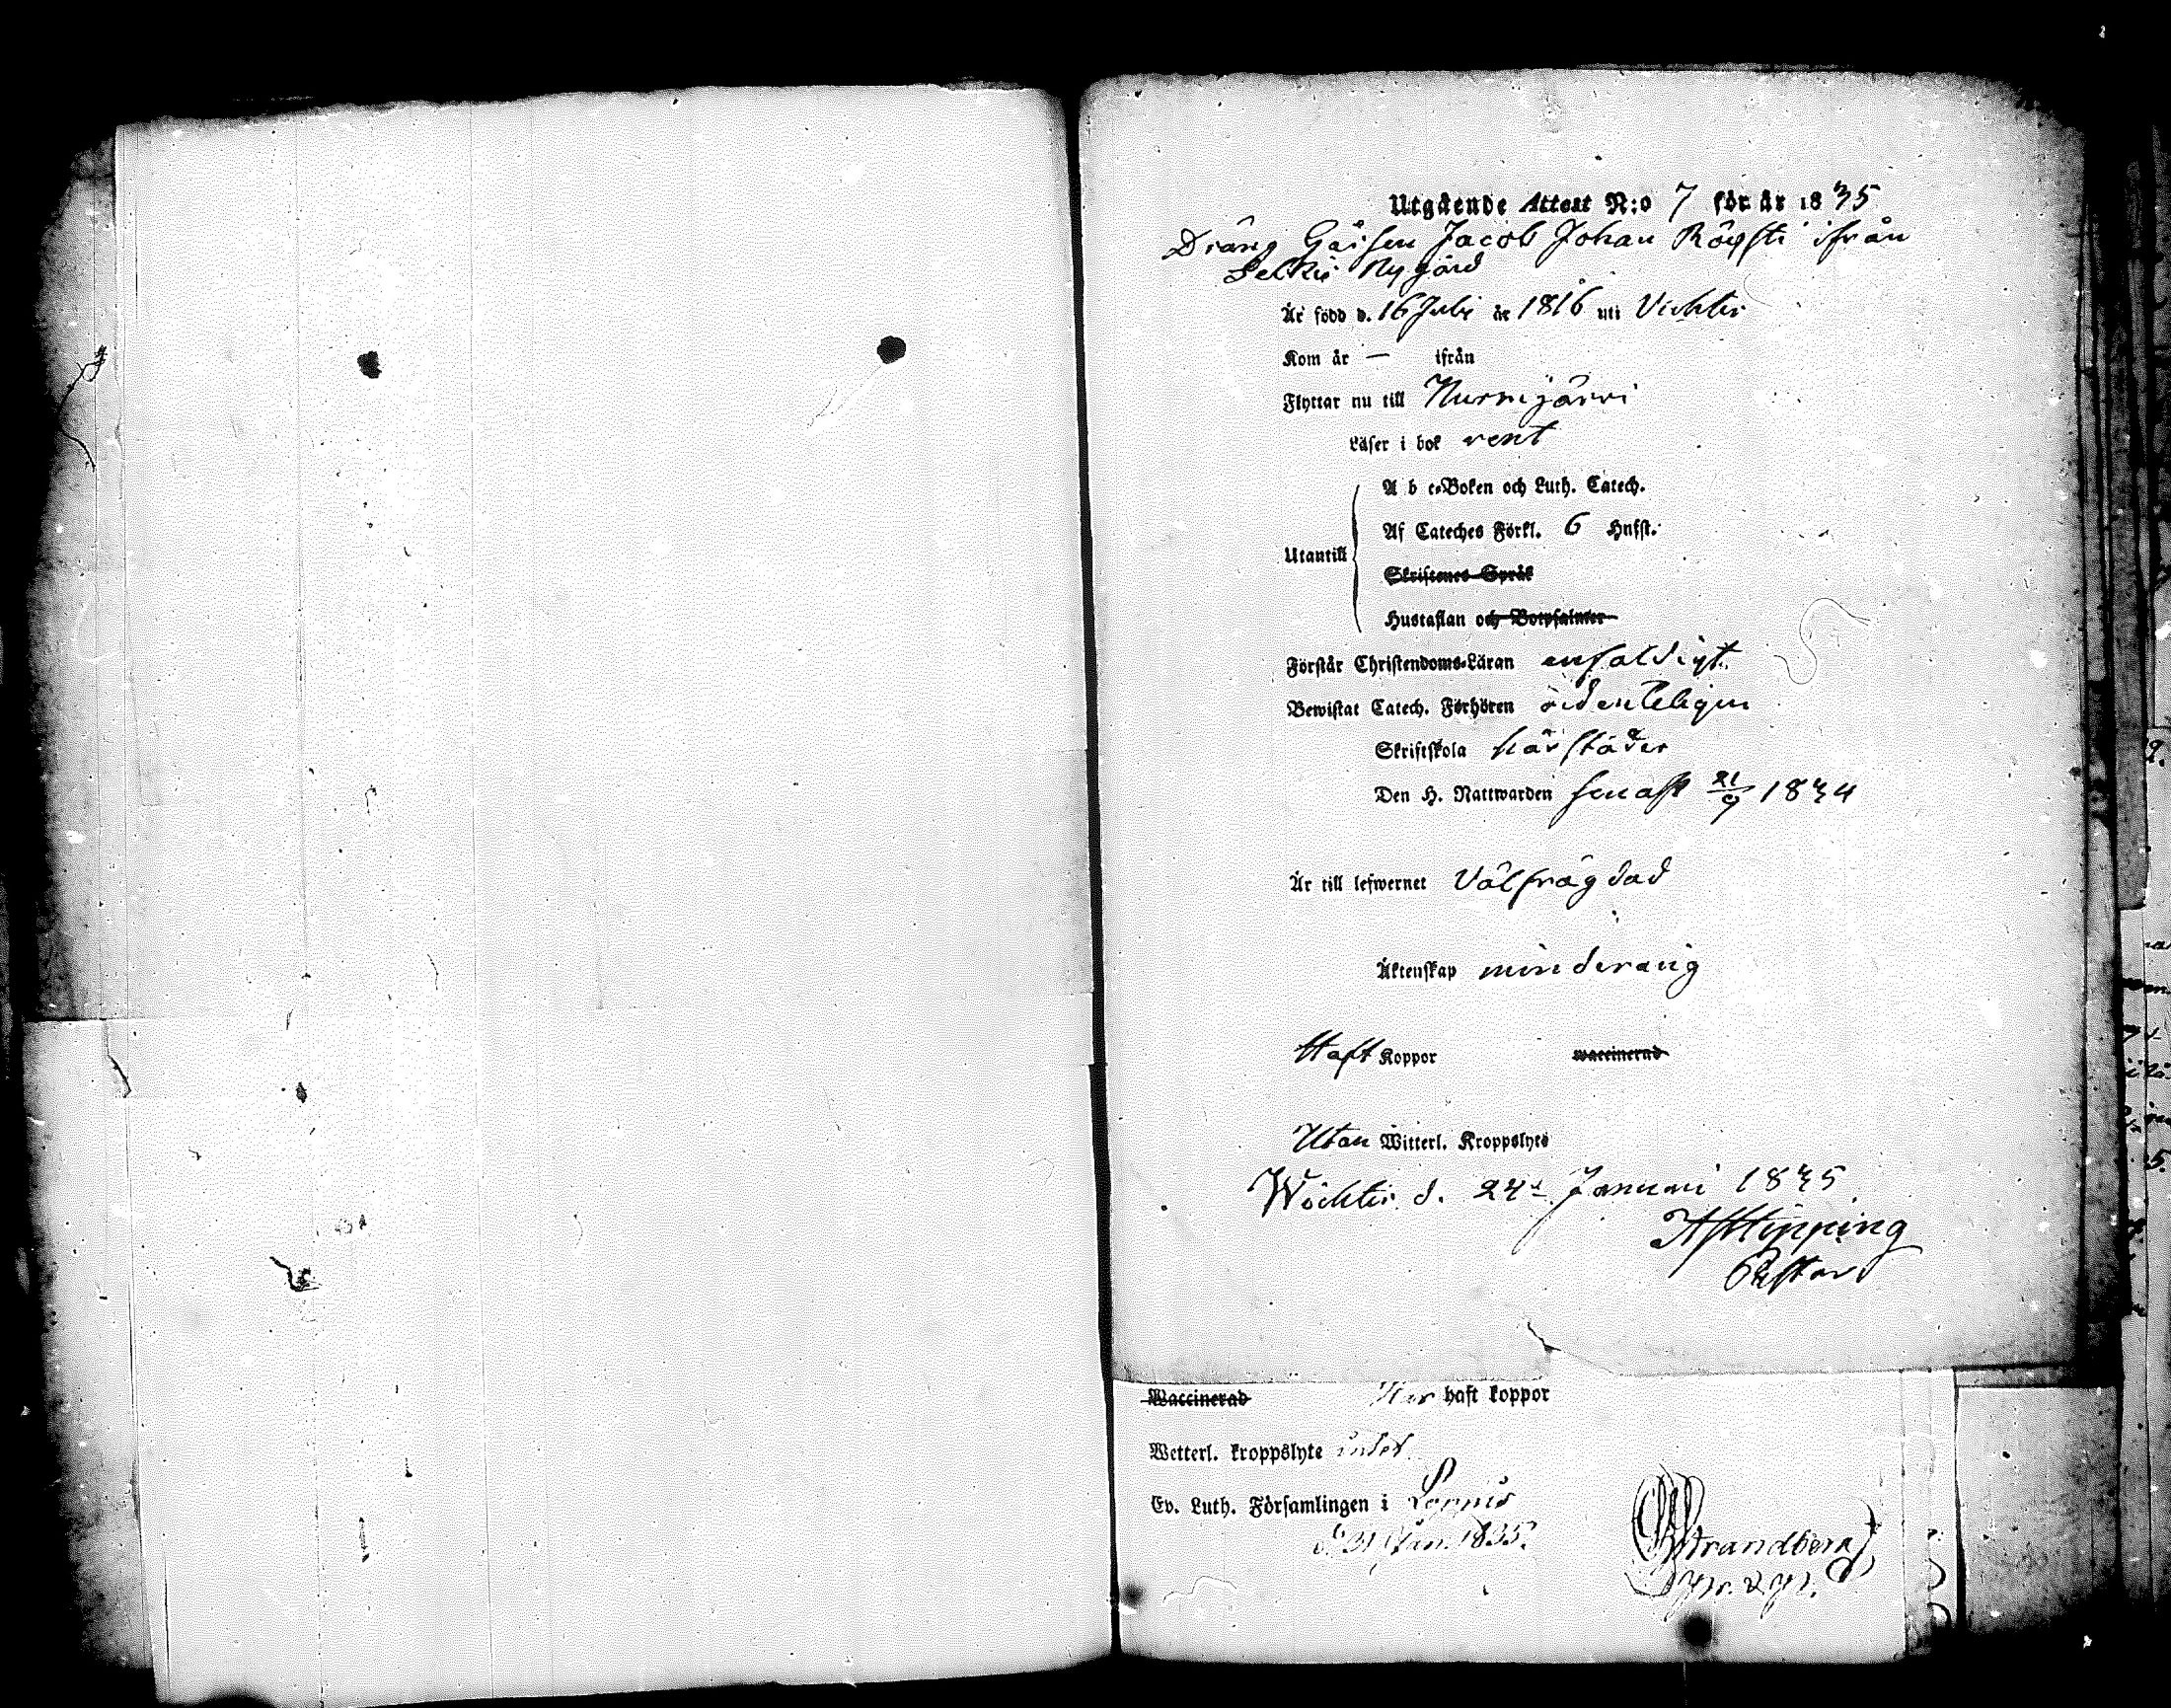 Utgående Attest N:o 7 för år 1835
Dräng Gåssen Jacob Johan Röysti ifrån
Selkis Nygård
Är född d. 16 Julii år 1816 uti Vichtis
Kom år — ifrån
Flyttar nu till Nurmijärvi
Läser i bok rent
A b c-Boken och Luth. Catech.
Af Cateches Förkl. 6 Hufst.
Utantill
Skriftenes Språk
Hustaflan och Botpsalmer
Förstår Christendoms-Läran enfaldigt
Bewistat Catech. Förhören ordenteligen
Skriftskola härstädes
Den H. Nattwarden senast 21/9 1834
Är till lefwernet Välfrägdad
Äktenskap minderårig
Haft Koppor waccinerad
Utan Witterl. Kroppslyte
Wichtis d. 24d Januari 1835
Hipping
Pastor
Waccinerad Har haft koppor
Wetterl. kroppslyte intet
Ev. Luth. Församlingen i Loppis
d. 31 Jan. 1835.
Strandberg